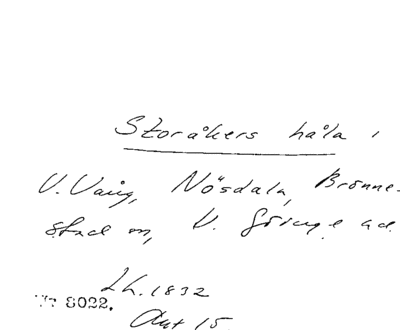 Storåkers håla,
V. Vång, Nösdala, Brönne-
stad sn, V. Göinge hd.
Lh. 1832
Akt 15
8022.